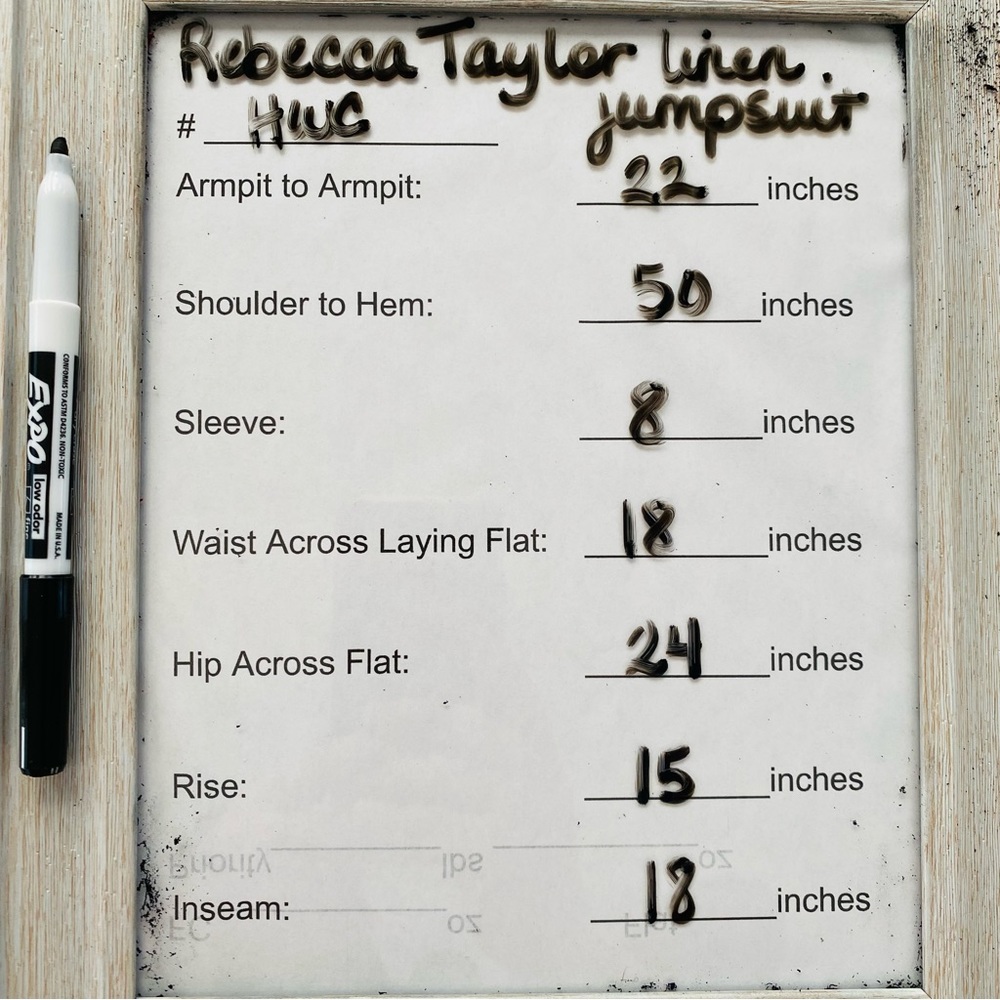 Rebecca Taylor linen.
jumpsuit
# HWC
Armpit to Armpit: 22 inches
Shoulder to Hem: 50 inches
Sleeve: 8 inches
Waist Across Laying Flat: 18 inches
Hip Across Flat: 24 inches
Rise: 15 inches
Priority lbs oz
Inseam: 18 inches
FC oz Flat
EXPO low odor
CONFORMS TO ASTM D4236. NON-TOXIC MADE IN U.S.A.